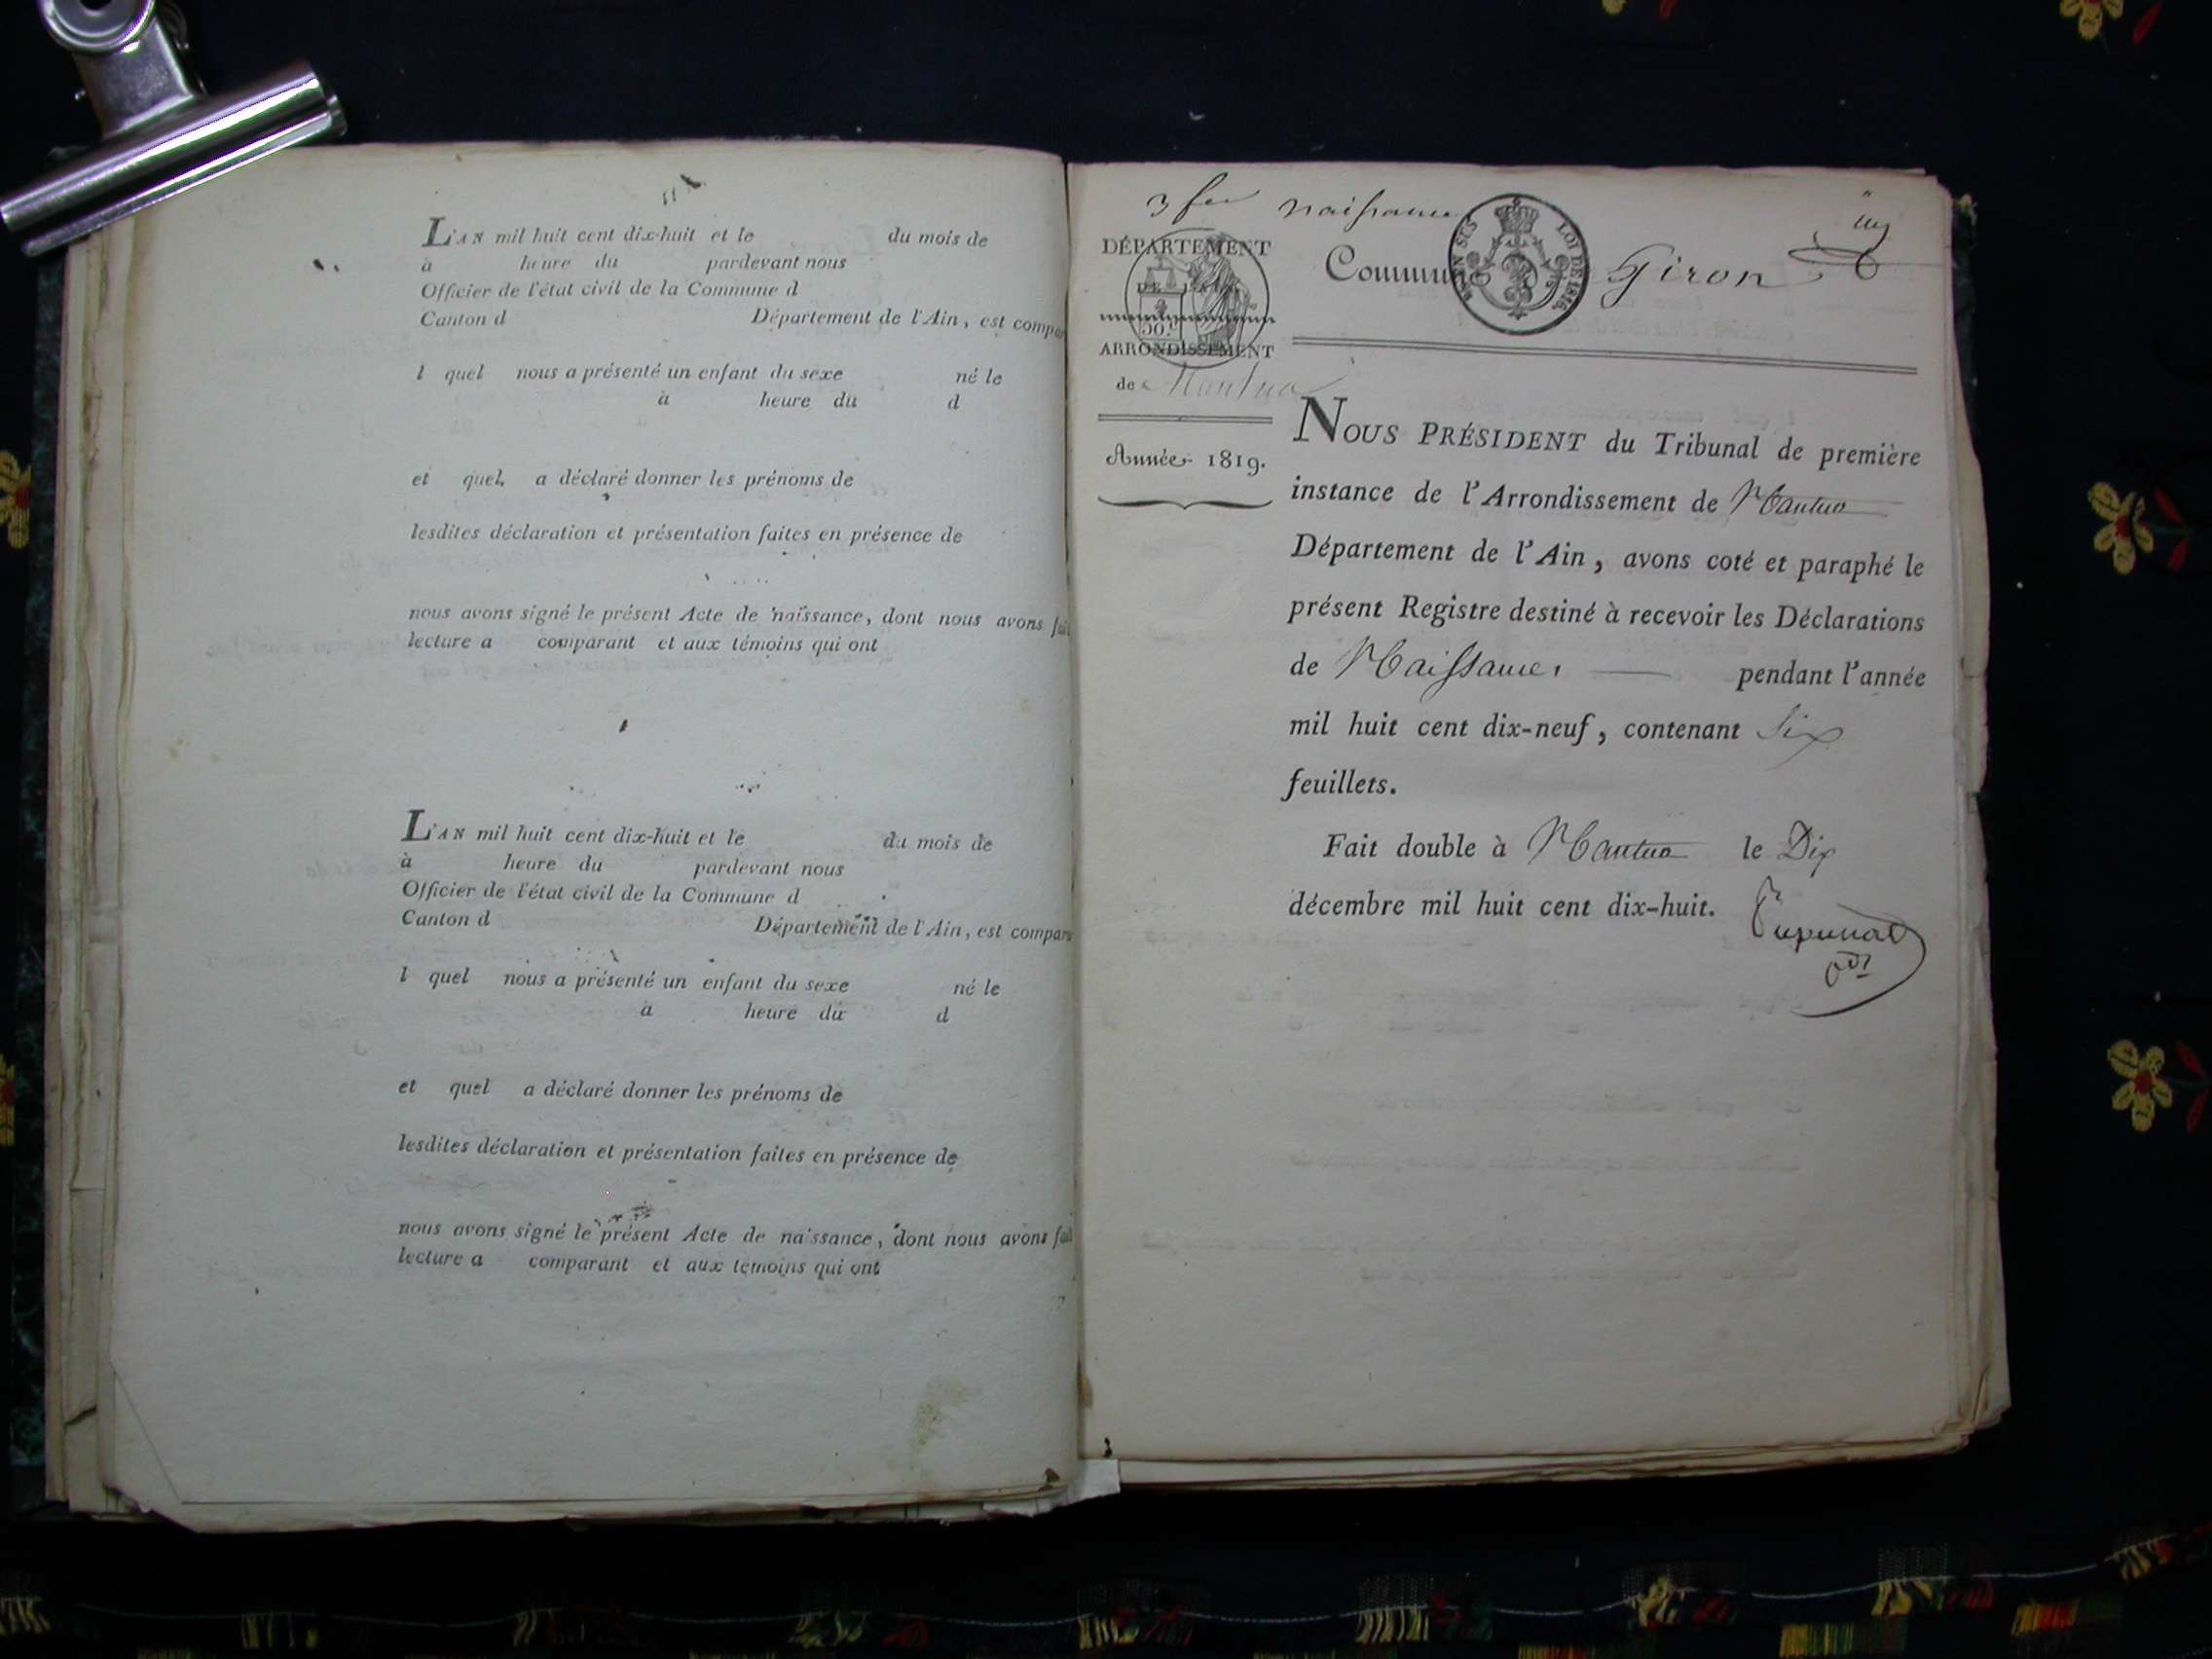 L'AN mil huit cent dix-huit et le du mois de
à heure du pardevant nous
Officier de l'état civil de la Commune d
Canton d Département de l'Ain, est compar
l quel nous a présenté un enfant du sexe né le
à heure du d
et quel a déclaré donner les prénoms de
lesdites déclaration et présentation faites en présence de
nous avons signé le présent Acte de naissance, dont nous avons fait
lecture a comparant et aux témoins qui ont
L'AN mil huit cent dix-huit et le du mois de
à heure du pardevant nous
Officier de l'état civil de la Commune d
Canton d Département de l'Ain, est compar
l quel nous a présenté un enfant du sexe né le
à heure du d
et quel a déclaré donner les prénoms de
lesdites déclaration et présentation faites en présence de
nous avons signé le présent Acte de naissance, dont nous avons fait
lecture a comparant et aux témoins qui ont
3 naissance
DÉPARTEMENT
DE L'AIN
50
ARRONDISSEMENT
de Mantua
Année 1819.
Commune Giron
EN SUS LOI DE 1816.
NOUS PRÉSIDENT du Tribunal de première
instance de l'Arrondissement de Nantua
Département de l'Ain, avons coté et paraphé le
présent Registre destiné à recevoir les Déclarations
de Naissance, pendant l'année
mil huit cent dix-neuf, contenant Six
feuillets.
Fait double à Nantua le Dix
décembre mil huit cent dix-huit.